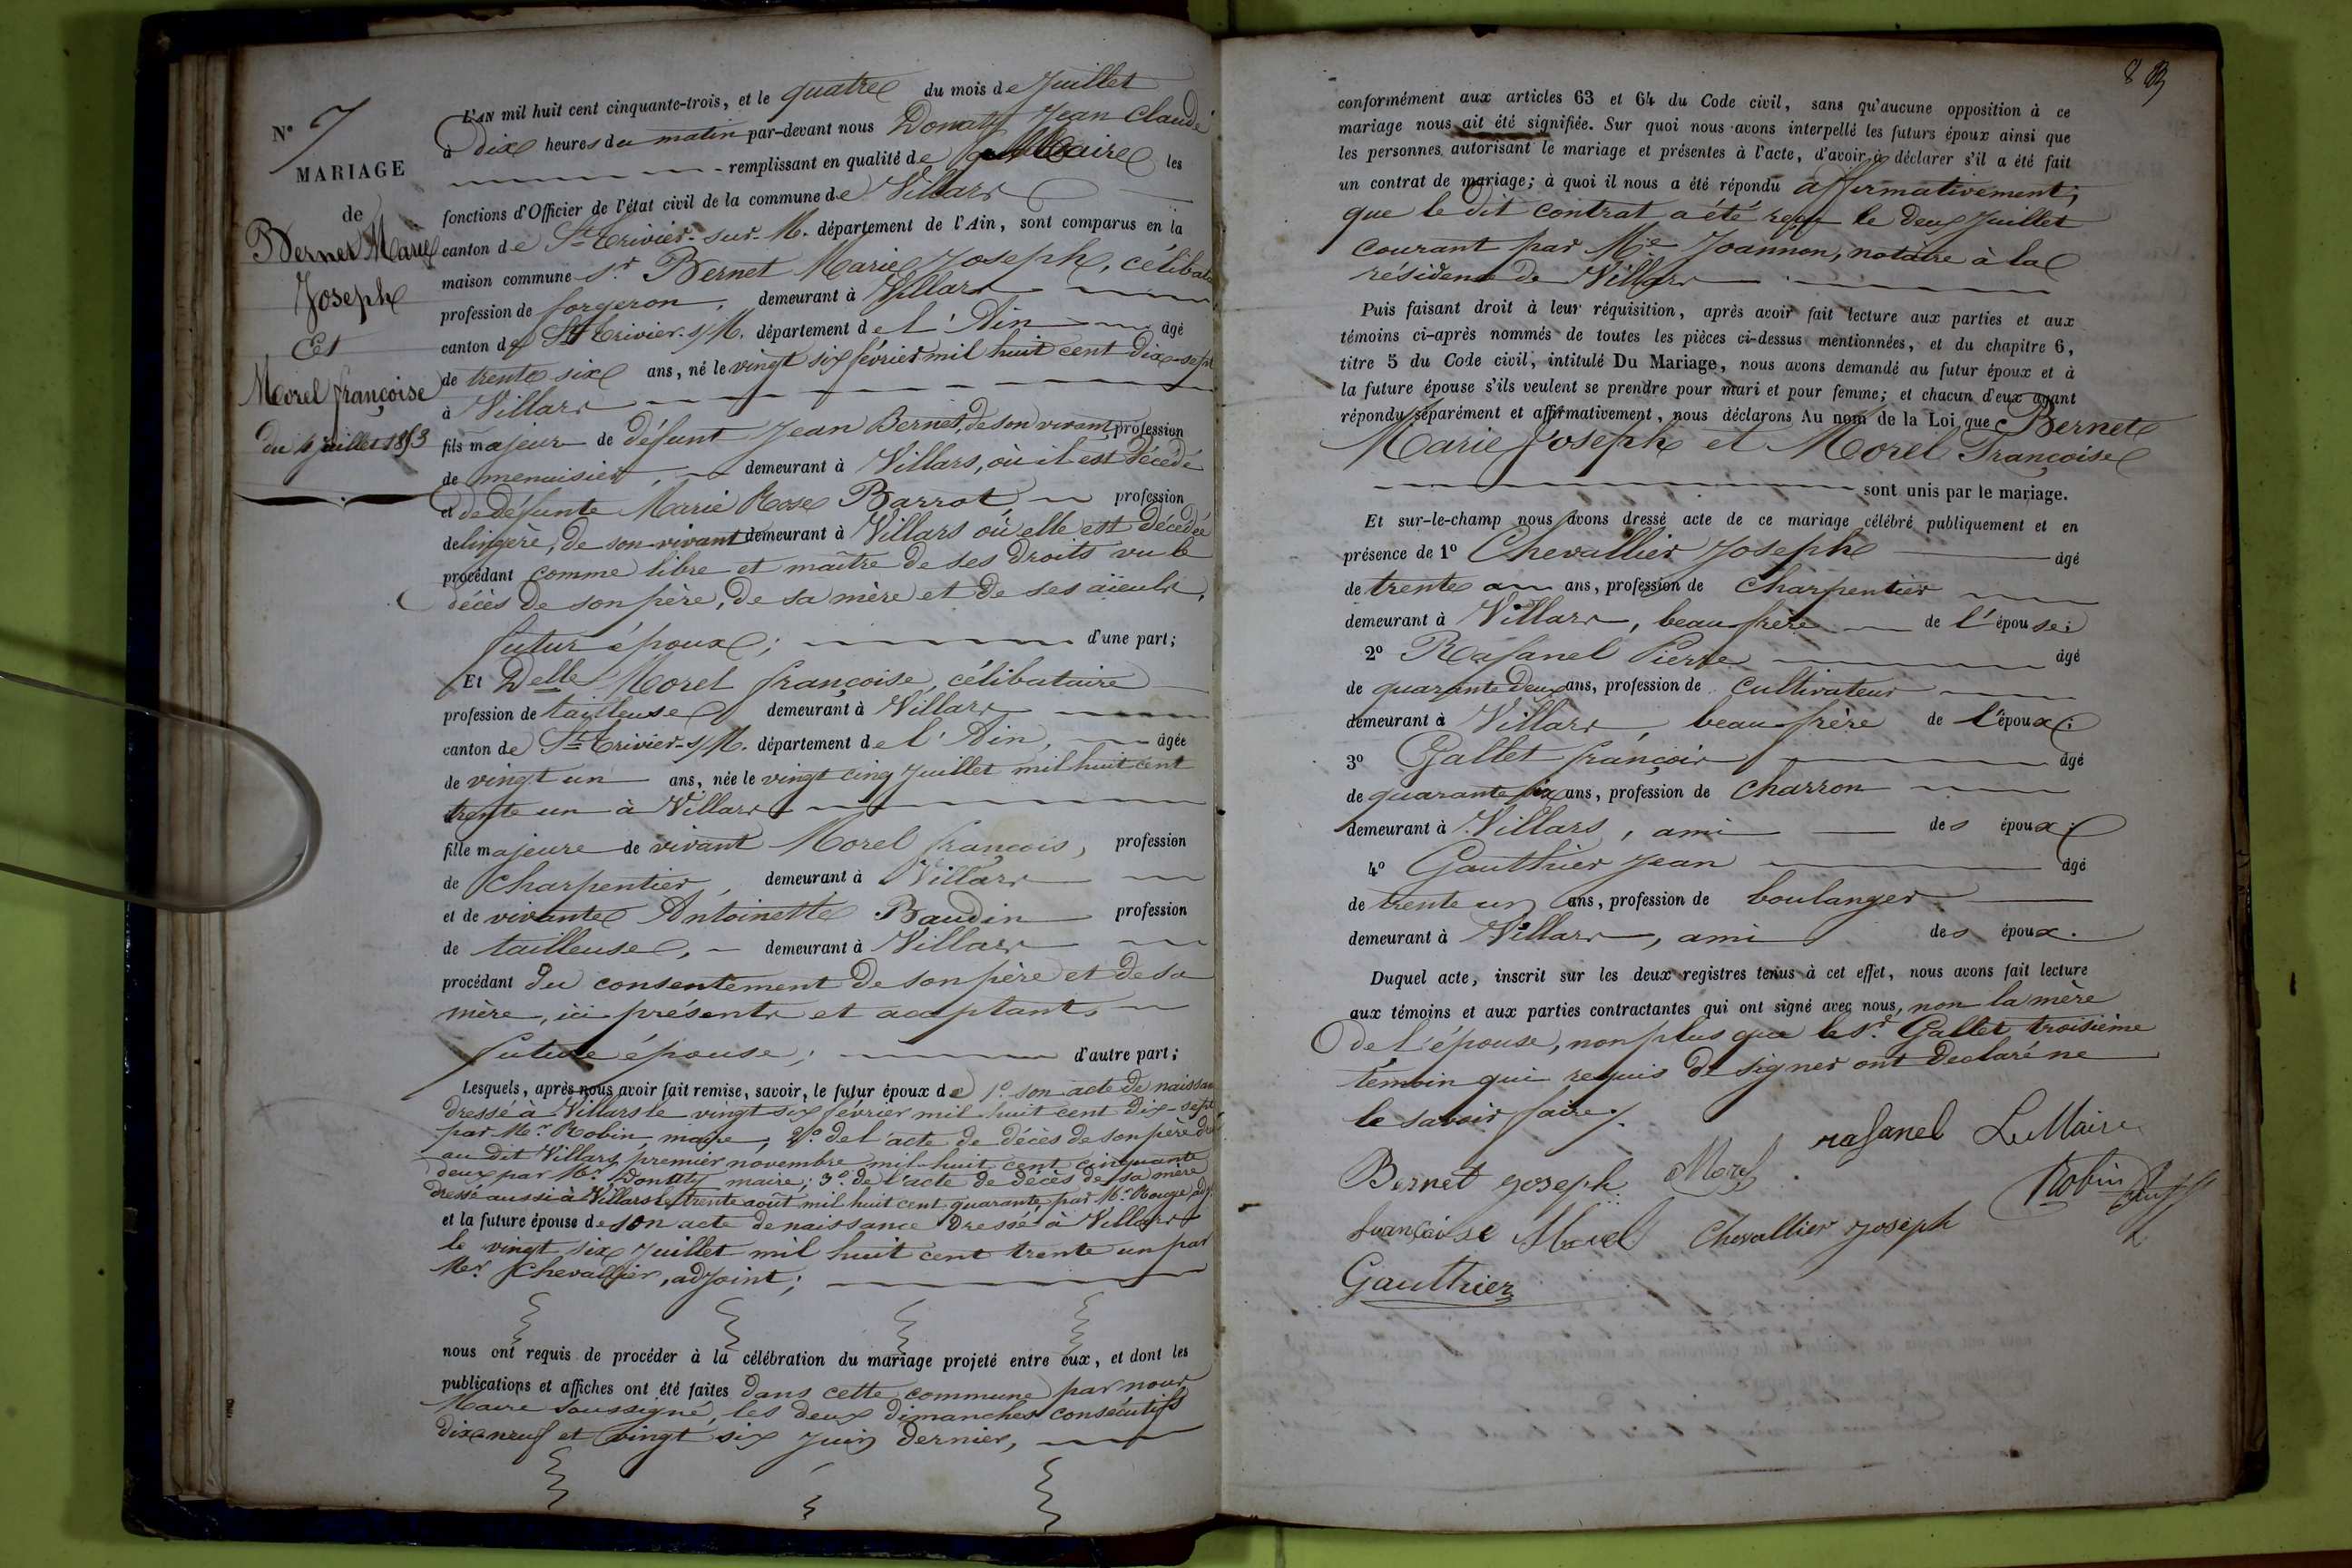 N° 7
MARIAGE
de
Bernet Marie
Joseph
Et
Morel françoise
du 4 juillet 1853
L'AN mil huit cent cinquante-trois, et le quatre du mois de Juillet
à dix heures du matin par-devant nous Donaty Jean Claude
remplissant en qualité de Maire les
fonctions d'Officier de l'état civil de la commune de Villars
canton de St Trivier-sur-M. département de l'Ain, sont comparus en la
maison commune Sr Bernet Marie Joseph, célibat
profession de forgeron, demeurant à Villars
canton de St Trivier-s/M. département de l'Ain âgé
de trente six ans, né le vingt six février mil huit cent dix-sept
à Villars
fils majeur de défunt Jean Bernet, de son vivant profession
de menuisier, demeurant à Villars, où il est décédé
et de défunte Marie Rose Barrot profession
de lingère, de son vivant demeurant à Villars où elle est décédée
procédant comme libre et maître de ses droits vu le
décès de son père, de sa mère et de ses aïeuls,
futur époux; d'une part;
Et Delle Morel françoise, célibataire
profession de tailleuse demeurant à Villars
canton de St Trivier-s/M. département de l'Ain, âgée
de vingt un ans, née le vingt cinq Juillet mil huit cent
trente un à Villars
fille majeure de vivant Morel françois, profession
de Charpentier, demeurant à Villars
et de vivante Antoinette Baudin profession
de tailleuse, demeurant à Villars
procédant du consentement de son père et de sa
mère, ici présents et acceptants
future épouse; d'autre part;
Lesquels, après nous avoir fait remise, savoir, le futur époux de 1° son acte de naissan
dressé à Villars le vingt six février mil huit cent dix-sept
par Mr Robin, maire; 2° de l'acte de décès de son père
au dit Villars, premier novembre mil huit cent cinquante
deux par Mr Donaty maire; 3° de l'acte de décès de sa mère
dressé aussi à Villars le trente août mil huit cent quarante, par Mr Rouge, adj.
et la future épouse de son acte de naissance dressé à Villars
le vingt six Juillet mil huit cent trente un par
Mr Chevallier, adjoint;
nous ont requis de procéder à la célébration du mariage projeté entre eux, et dont les
publications et affiches ont été faites dans cette commune par nous
Maire soussigné, les deux dimanches consécutifs
dix neuf et vingt six Juin dernier,
conformément aux articles 63 et 64 du Code civil, sans qu'aucune opposition à ce
mariage nous ait été signifiée. Sur quoi nous avons interpellé les futurs époux ainsi que
les personnes autorisant le mariage et présentes à l'acte, d'avoir à déclarer s'il a été fait
un contrat de mariage; à quoi il nous a été répondu affirmativement;
que le dit contrat a été reçu le deux Juillet
courant par Me Joannon, notaire à la
résidence de Villars
Puis faisant droit à leur réquisition, après avoir fait lecture aux parties et aux
témoins ci-après nommés de toutes les pièces ci-dessus mentionnées, et du chapitre 6,
titre 5 du Code civil, intitulé Du Mariage, nous avons demandé au futur époux et à
la future épouse s'ils veulent se prendre pour mari et pour femme; et chacun d'eux ayant
répondu séparément et affirmativement, nous déclarons Au nom de la Loi que Bernet
Marie Joseph et Morel Françoise
sont unis par le mariage.
Et sur-le-champ nous avons dressé acte de ce mariage célébré publiquement et en
présence de 1° Chevallier Joseph âgé
de trente ans, profession de Charpentier
demeurant à Villars, beau frère de l'épouse;
2° Rafanel Pierre âgé
de quarante deux ans, profession de cultivateur
demeurant à Villars, beau-frère de l'époux;
3° Gallet françois âgé
de quarante six ans, profession de Charron
demeurant à Villars, ami des époux;
4° Gauthier Jean âgé
de trente un ans, profession de boulanger
demeurant à Villars, ami des époux.
Duquel acte, inscrit sur les deux registres tenus à cet effet, nous avons fait lecture
aux témoins et aux parties contractantes qui ont signé avec nous, non la mère
de l'épouse, non plus que le Sr Gallet troisième
témoin qui requis de signer ont déclaré ne
le savoir faire.
Bernet joseph Morel rafanel Le Maire
françoise Morel Chevallier joseph Robin
Gauthier